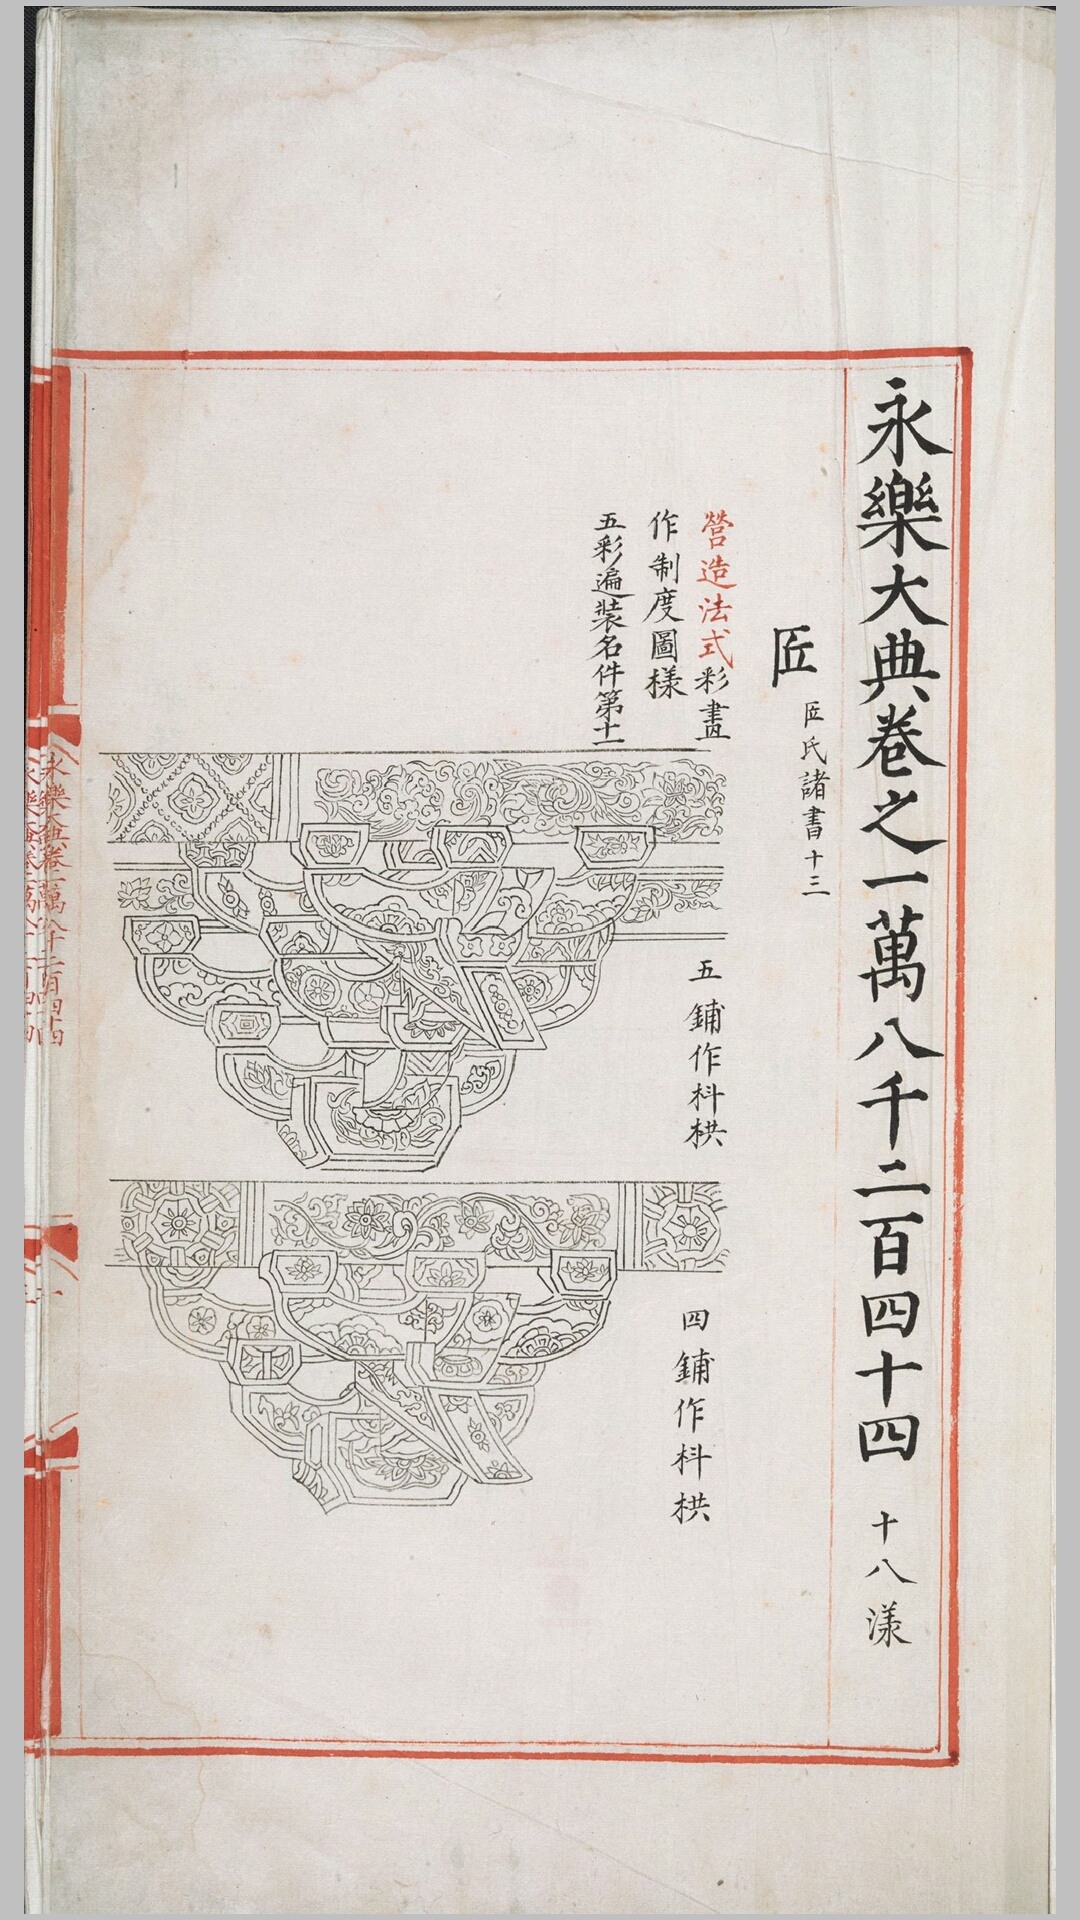 永樂大典卷之一萬八千二百四十四 十八漾
匠 匠氏諸書十三
營造法式彩畫
作制度圖樣
五彩遍装名件第十一
五鋪作枓栱
四鋪作枓栱
永樂大典卷一萬八千二百四十四